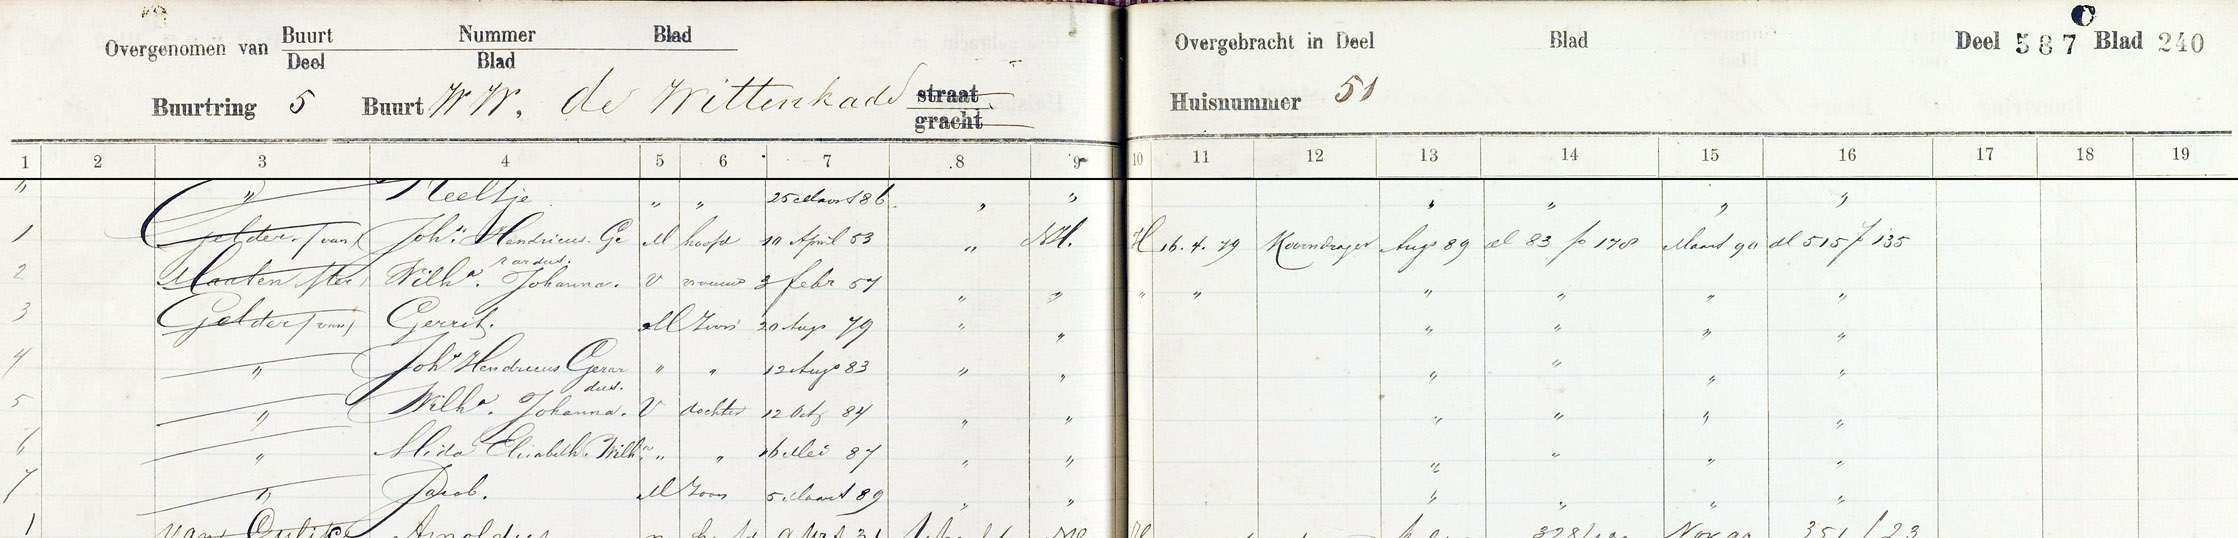 Overgenomen van Buurt Deel Nummer Blad Blad
Overgebracht in Deel Blad Deel 587 Blad 240
Buurtring 5 Buurt WW. de Wittenkade straat gracht
Huisnummer 51
1 2 3 4 5 6 7 8 9 10 11 12 13 14 15 16 17 18 19
" " Neeltje " " 25 Maart 86 " " " " " "
1 Gelder (van) Johs. Hendricus Ge M hoofd 10 April 53 " NH. H 16.4.79 Koorndrager Augs 89 dl 83 fo 170 Maart 90 dl 515 f 135
rardus.
2 Wilha. Johanna. V vrouw 3 febr 57 " " " " " " " "
3 Gelder (van) Gerrit. M Zoon 20 Augs 79 " " " " " "
4 " Johs Hendricus Gerar " " 12 Augs 83 " " " " " "
dus.
5 " Wilha. Johanna. V dochter 12 Octr 84 " " " " " "
6 " Alida Elisabeth Wilha. " " 16 Mei 87 " " " " " "
7 " Jacob. M Zoon 5 Maart 89 " " " " " "
1 van Arnoldus 31 NH H 328 Nov 90 351 / 23